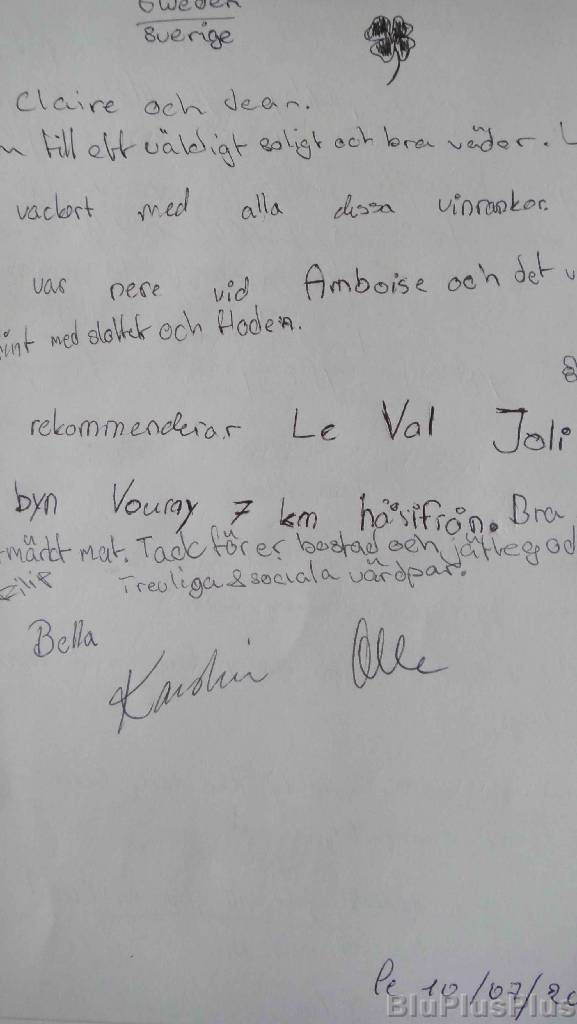 Sweden
Sverige
Claire och Jean.
till ett väldigt soligt och bra väder.
vackort med alla dessa vinrankor.
var nere vid Amboise och det
med slottet och floden.
rekommenderar Le Val Joli
byn Vouray 7 km härifrån. Bra
märkt mat. Tack för er bostad och jättegod
Filip Trevliga & sociala värdpar.
Bella
Karolin Olle
le 10/07/20
BluPlusPlus